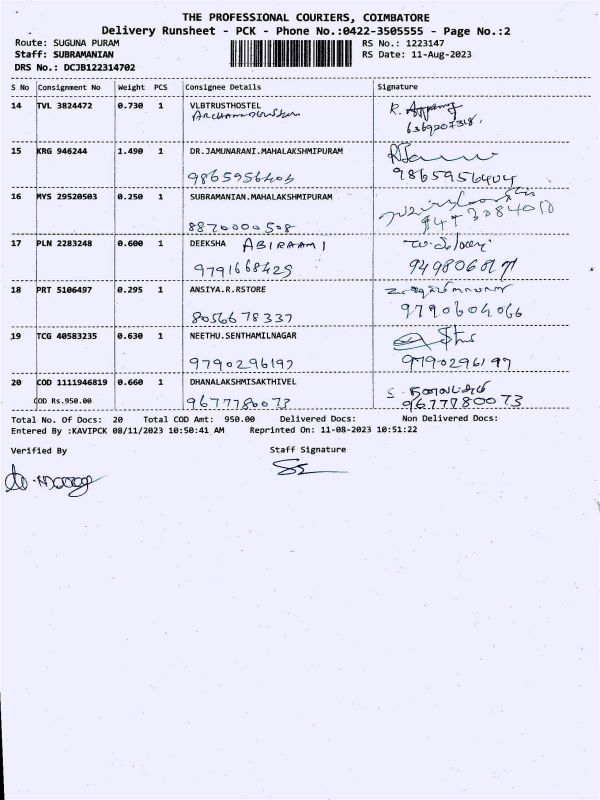 THE PROFESSIONAL COURIERS, COIMBATORE
Delivery Runsheet - PCK - Phone No.:0422-3505555 - Page No.:2
Route: SUGUNA PURAM RS No.: 1223147
Staff: SUBRAMANIAN RS Date: 11-Aug-2023
DRS No.: DCJB122314702
S No Consignment No Weight PCS Consignee Details Signature
14 TVL 3824472 0.730 1 VLBTRUSTHOSTEL
6369207318.
15 KRG 946244 1.490 1 DR.JAMUNARANI.MAHALAKSHMIPURAM
9865956404 9865956404
16 MYS 29520503 0.250 1 SUBRAMANIAN.MAHALAKSHMIPURAM
8870000508
17 PLN 2283248 0.600 1 DEEKSHA ABIRAAMI
9791668425
18 PRT 5106497 0.295 1 ANSIYA.R.RSTORE
8056678337 9790604066
19 TCG 40583235 0.630 1 NEETHU.SENTHAMILNAGAR
9790296197 9790296197
20 COD 1111946819 0.660 1 DHANALAKSHMISAKTHIVEL
COD Rs.950.00 9677780073 9677780073
Total No. Of Docs: 20 Total COD Amt: 950.00 Delivered Docs: Non Delivered Docs:
Entered By :KAVIPCK 08/11/2023 10:50:41 AM Reprinted On: 11-08-2023 10:51:22
Verified By Staff Signature